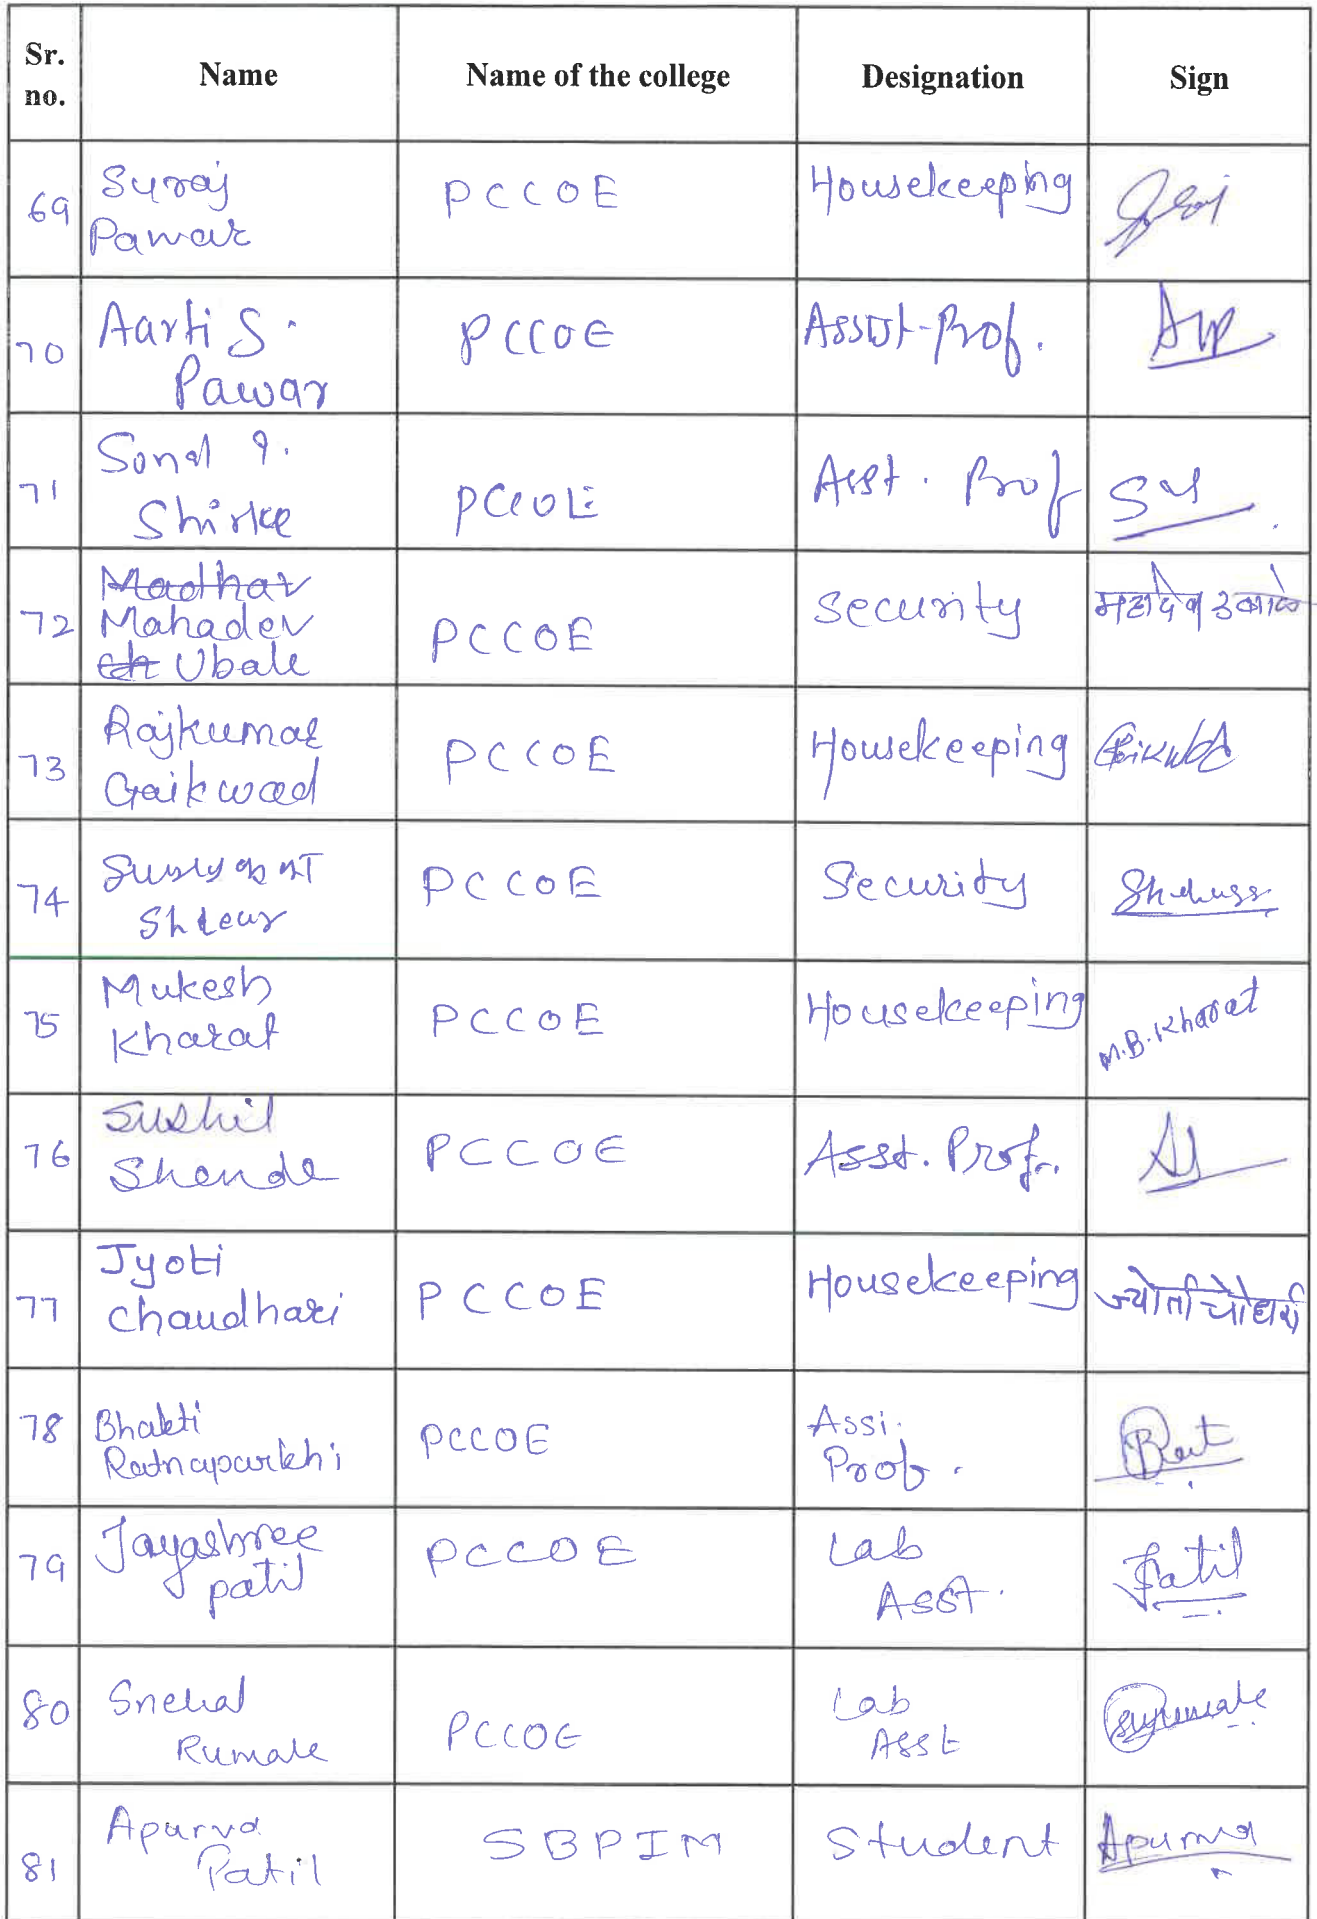 Sr. no. Name Name of the college Designation Sign
69 Suraj Pawar PCCOE Housekeeping
70 Aarti S. Pawar PCCOE Assist-Prof.
71 Sonal P. Shirke PCCOE Asst. Prof
72 Madhav Mahadev Ubale PCCOE Security महादेव उबाळे
73 Rajkumar Gaikwad PCCOE Housekeeping
74 PCCOE Security
75 Mukesh Kharat PCCOE Housekeeping M.B. Kharat
76 Sushil Shende PCCOE Asst. Prof.
77 Jyoti Chaudhari PCCOE Housekeeping ज्योती चौधरी
78 Bhakti Ratnaparkhi PCCOE Assi. Prof.
79 Jayashree patil PCCOE Lab Asst. Patil
80 Snehal Rumale PCCOE Lab Asst
81 Apurva Patil SBPIM Student Apurva